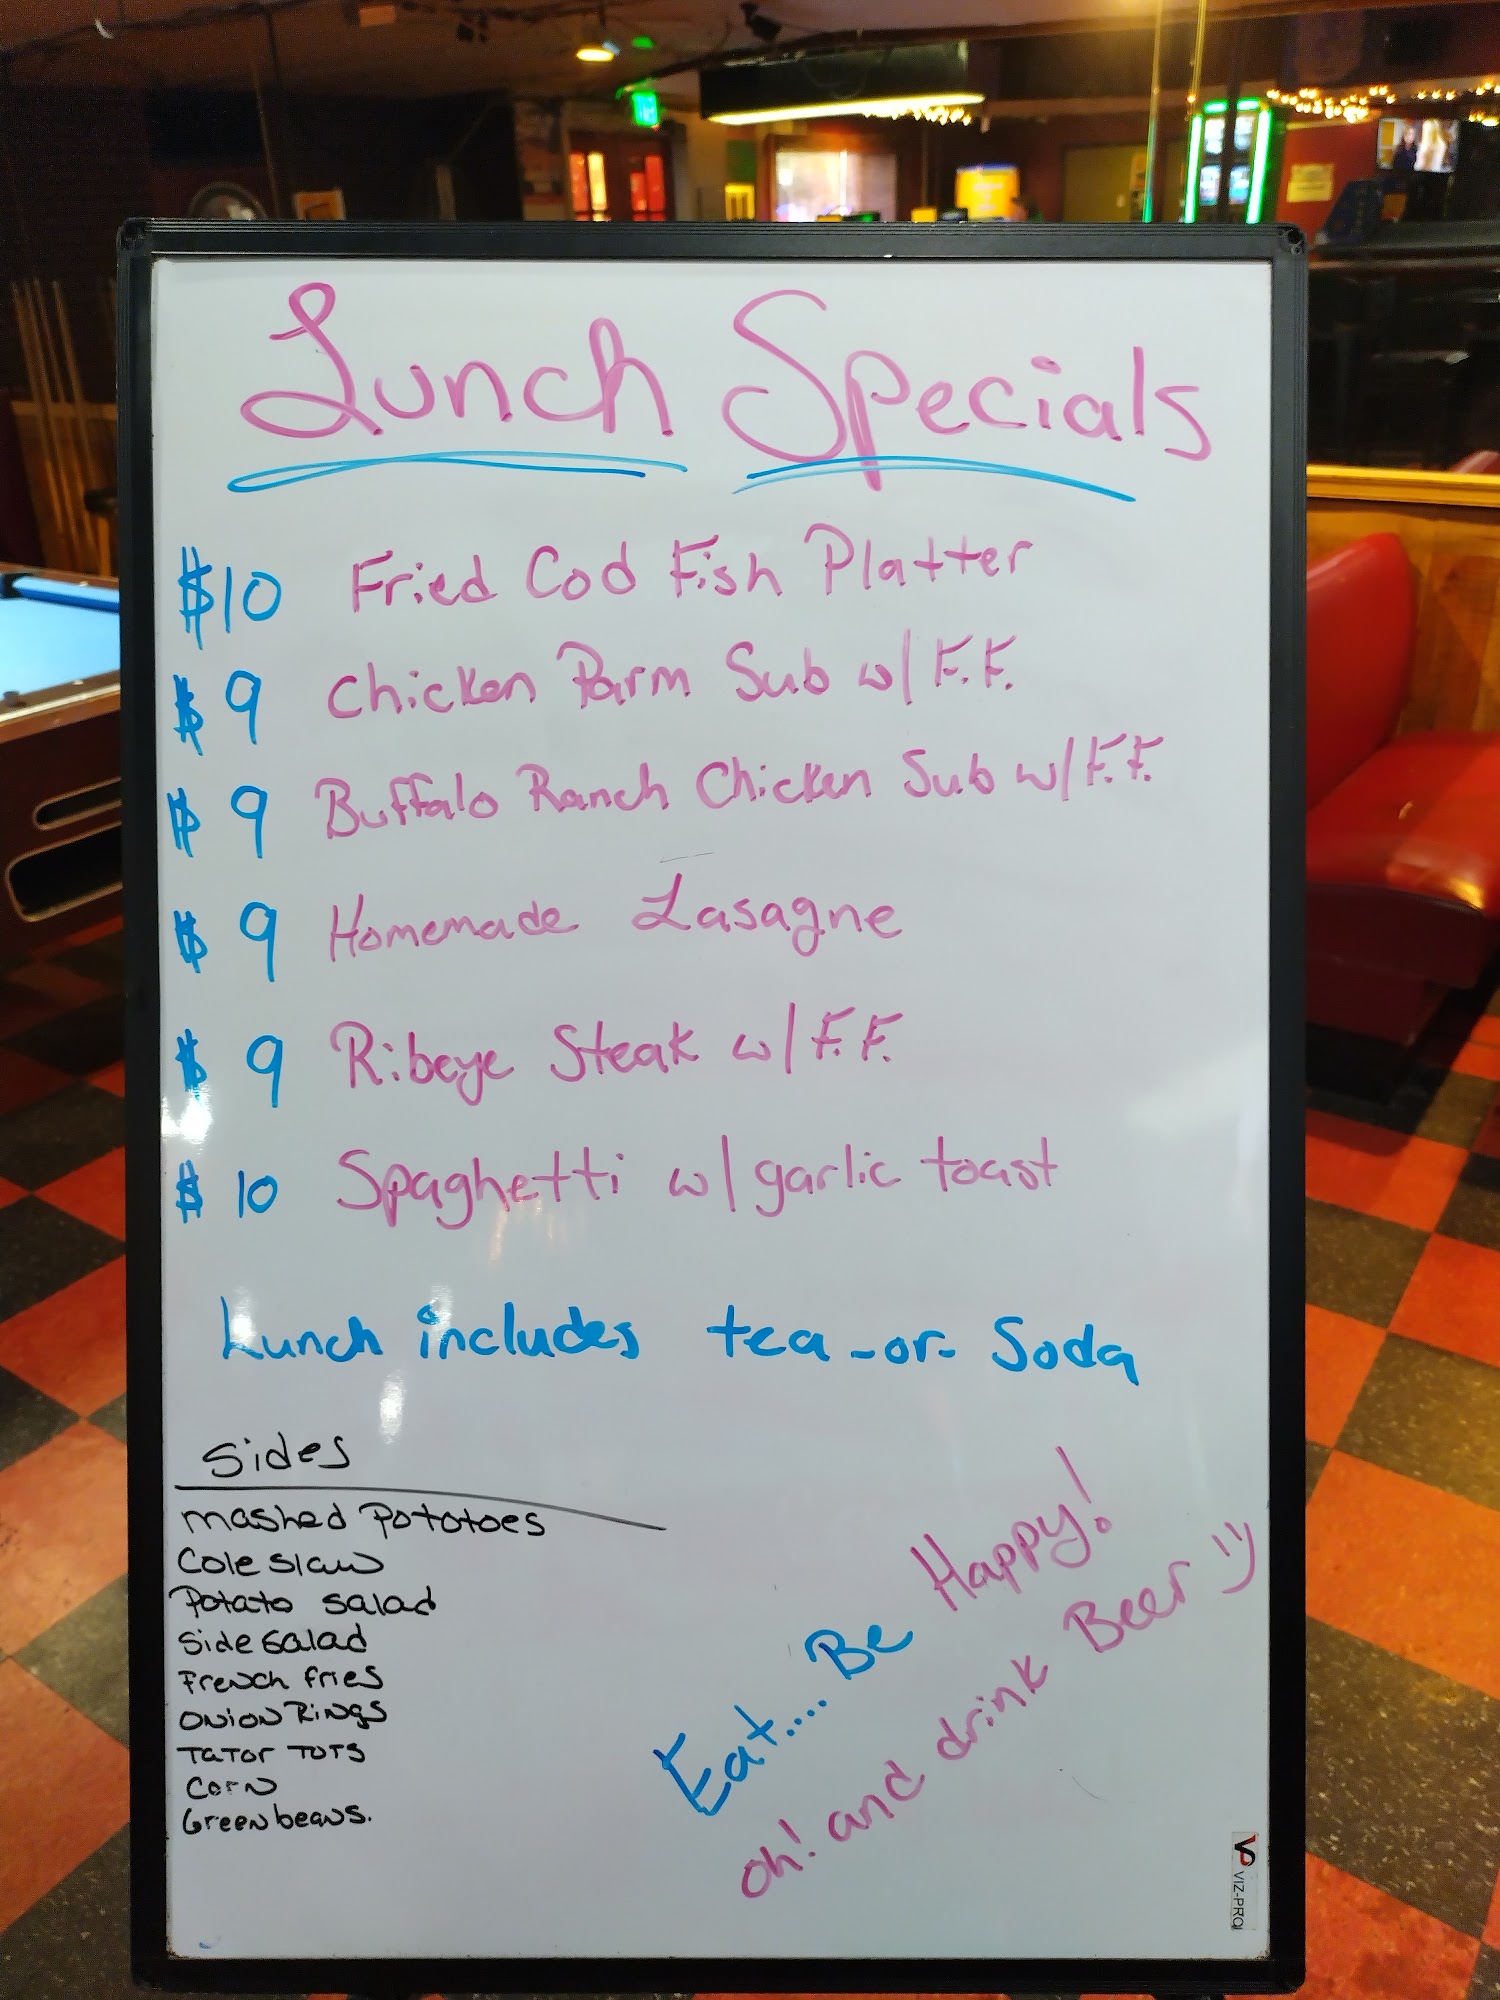 Lunch Specials
$10 Fried Cod Fish Platter
$9 Chicken Parm Sub w/ F.F.
$9 Buffalo Ranch Chicken Sub w/ F.F.
$9 Homemade Lasagne
$9 Ribeye Steak w/ F.F.
$10 Spaghetti w/ garlic toast
Lunch includes tea -or- Soda
Sides
mashed Pototoes
Cole slaw
Potato salad
Side salad
French fries
Onion Rings
Tator Tots
Corn
Green beans.
Eat.... Be Happy!
oh! and drink Beer :)
VP VIZ-PRO